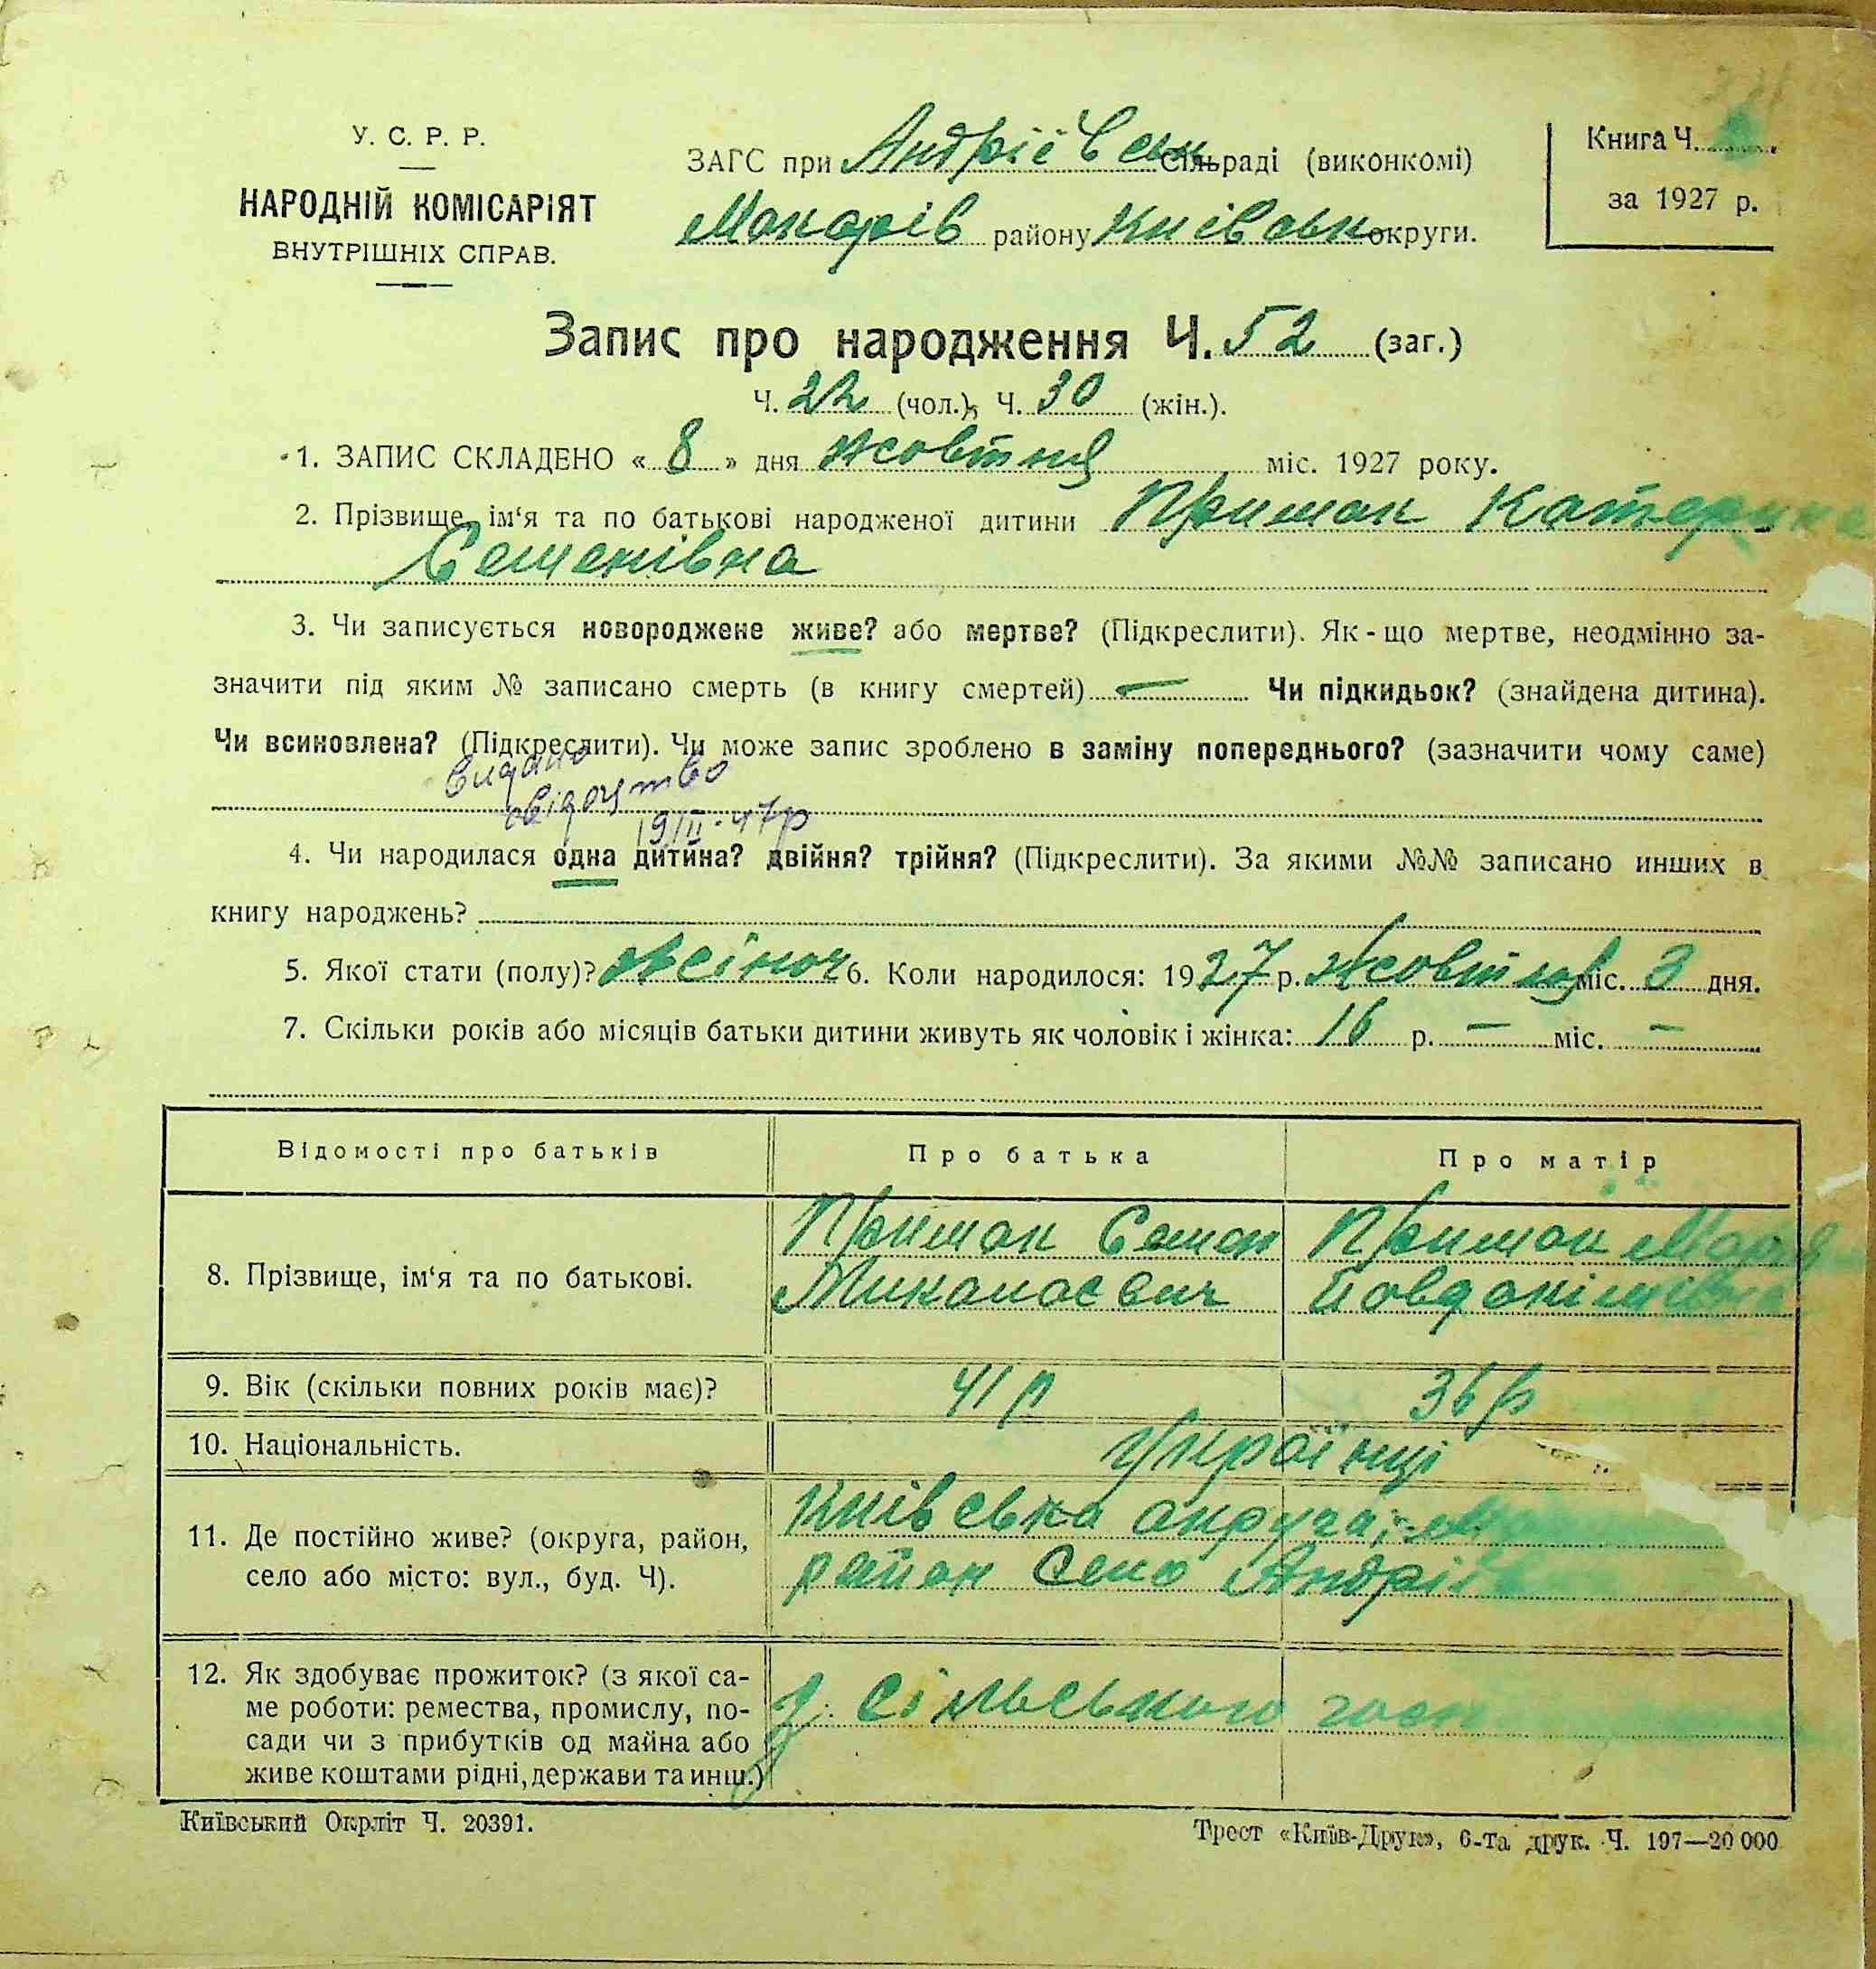 У. С. Р. Р.
НАРОДНІЙ КОМІСАРІЯТ
ВНУТРІШНІХ СПРАВ.
ЗАГС при Андріївськ Сільраді (виконкомі)
Макарів району Київськ округи.
Книга Ч.
за 1927 р.
Запис про народження Ч. 52 (заг.)
Ч. 22 (чол.), Ч. 30 (жін.).
1. ЗАПИС СКЛАДЕНО « 8 » дня жовтня міс. 1927 року.
2. Прізвище, ім‘я та по батькові народженої дитини Примак Катерина
Семенівна
3. Чи записується новороджене живе? або мертве? (Підкреслити). Як-що мертве, неодмінно за-
значити під яким № записано смерть (в книгу смертей) — Чи підкидьок? (знайдена дитина).
Чи всиновлена? (Підкреслити). Чи може запис зроблено в заміну попереднього? (зазначити чому саме)
видано
свідоцтво
19/II-47р
4. Чи народилася одна дитина? двійня? трійня? (Підкреслити). За якими №№ записано инших в
книгу народжень?
5. Якої стати (полу)? жіноч 6. Коли народилося: 1927 р. жовтня міс. 3 дня.
7. Скільки років або місяців батьки дитини живуть як чоловік і жінка: 16 р. — міс. —
Відомості про батьків Про батька Про матір
8. Прізвище, ім‘я та по батькові. Примак Семен Примак Марія
Миколаєвич Йовдокімівна
9. Вік (скільки повних років має)? 41 р 36 р
10. Національність. Українці
11. Де постійно живе? (округа, район, Київська округа,
село або місто: вул., буд. Ч). район Село Андріїв
12. Як здобуває прожиток? (з якої са-
ме роботи: ремества, промислу, по- з сільського госп
сади чи з прибутків од майна або
живе коштами рідні, держави та инш.)
Київський Окрліт Ч. 20391.
Трест «Київ-Друк», 6-та друк. Ч. 197—20 000